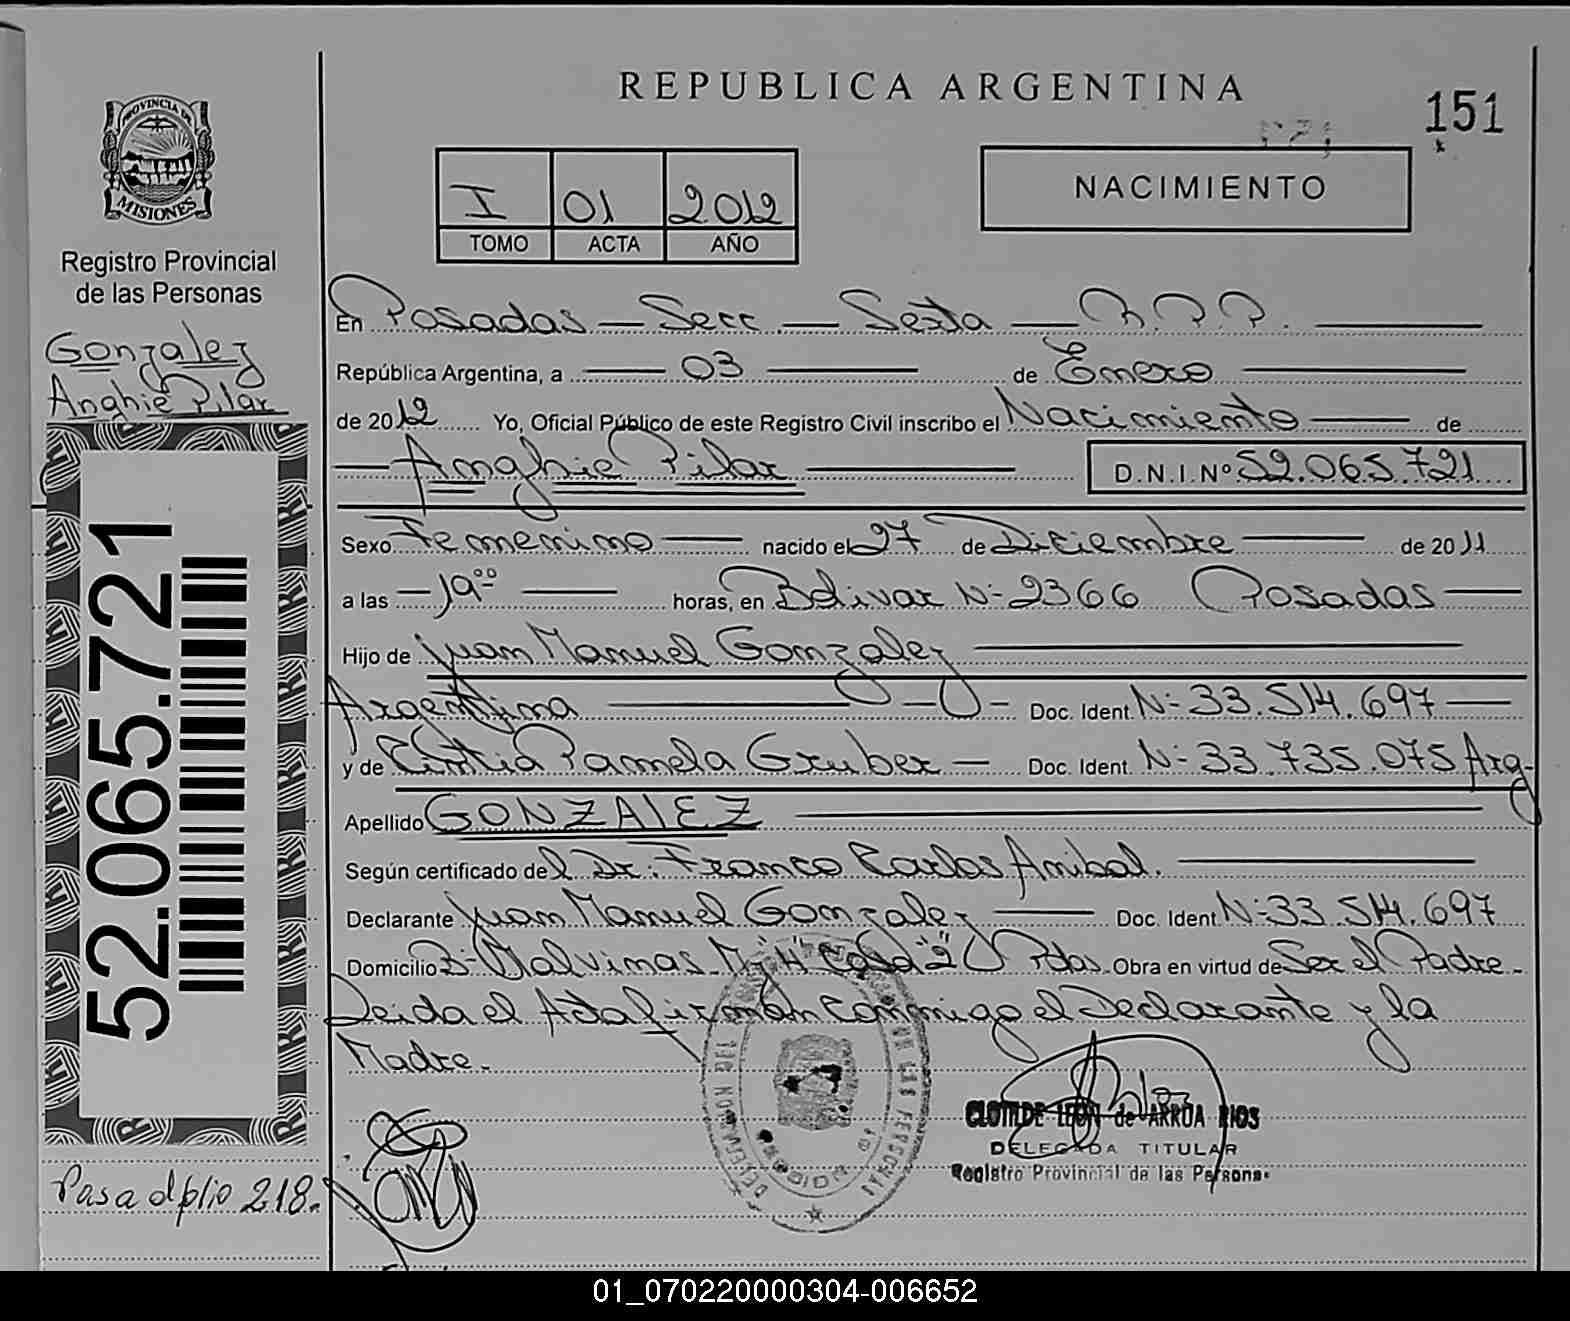 REPUBLICA ARGENTINA
151
PROVINCIA DE
MISIONES
Registro Provincial
de las Personas
Gonzalez
Anghie Pilar
52.065.721
Pasa al folio 218.
I 01 2012
TOMO ACTA AÑO
NACIMIENTO
En Posadas — Secc — Sexta — R.P.P.
República Argentina, a 03 de Enero
de 2012 Yo, Oficial Público de este Registro Civil inscribo el Nacimiento de
Anghie Pilar D.N.I.Nº 52.065.721
Sexo Femenino nacido el 27 de Diciembre de 2011
a las 19⁰⁰ horas, en Bolivar Nº 2366 Posadas
Hijo de Juan Manuel Gonzalez
Argentina Doc. Ident. Nº 33.514.697
y de Cintia Pamela Gruber — Doc. Ident. Nº 33.735.075 Arg-
Apellido GONZALEZ
Según certificado del Dr. Franco Carlos Anibal.
Declarante Juan Manuel Gonzalez Doc. Ident. Nº 33.514.697
Domicilio Bº Malvinas Mz "H" Casa "2" Pdas. Obra en virtud de Ser el Padre.
Leida el Acta firman Conmigo el Declarante y la
Madre.
CLOTILDE LEON de ARRUA RIOS
DELEGADA TITULAR
Registro Provincial de las Personas
01_070220000304-006652